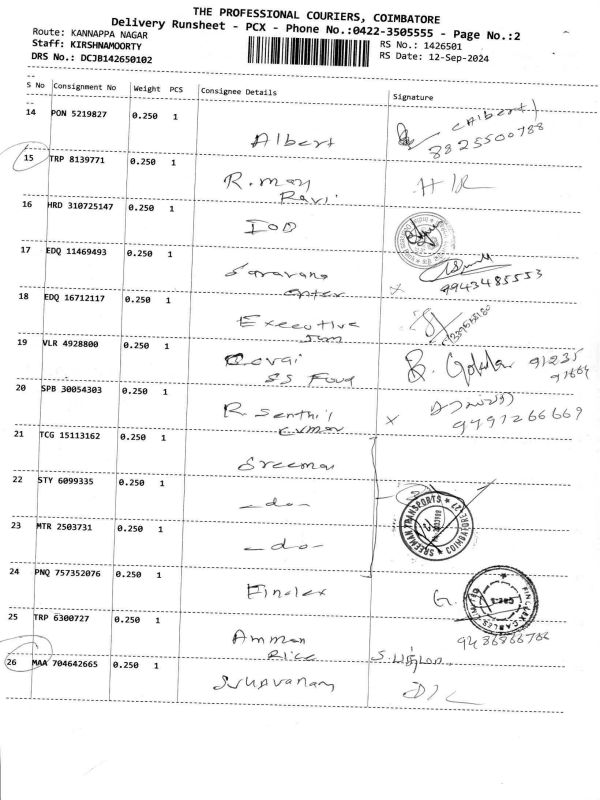 THE PROFESSIONAL COURIERS, COIMBATORE
Delivery Runsheet - PCX - Phone No.:0422-3505555 - Page No.:2
Route: KANNAPPA NAGAR
RS No.: 1426501
Staff: KIRSHNAMOORTY
RS Date: 12-Sep-2024
DRS No.: DCJB142650102
S No Consignment No Weight PCS Consignee Details Signature
14 PON 5219827 0.250 1 Albert (Albert) 8825500788
15 TRP 8139771 0.250 1 R. may Ravi
16 HRD 310725147 0.250 1 IOD
17 EDQ 11469493 0.250 1 Saravana enter x 9943485553
18 EDQ 16712117 0.250 1 Executive
19 VLR 4928800 0.250 1 Covai SS Food 91235
20 SPB 30054303 0.250 1 R. Senthil kumar x 9791266669
21 TCG 15113162 0.250 1 Sreeman
22 STY 6099335 0.250 1 -do-
23 MTR 2503731 0.250 1 -do-
SREEMAN TRANSPORTS, COIMBATORE-27
24 PNQ 757352076 0.250 1 Finolex G.
FINOLEX CABLES
25 TRP 6300727 0.250 1 Amman Rice 9486866766
26 MAA 704642665 0.250 1